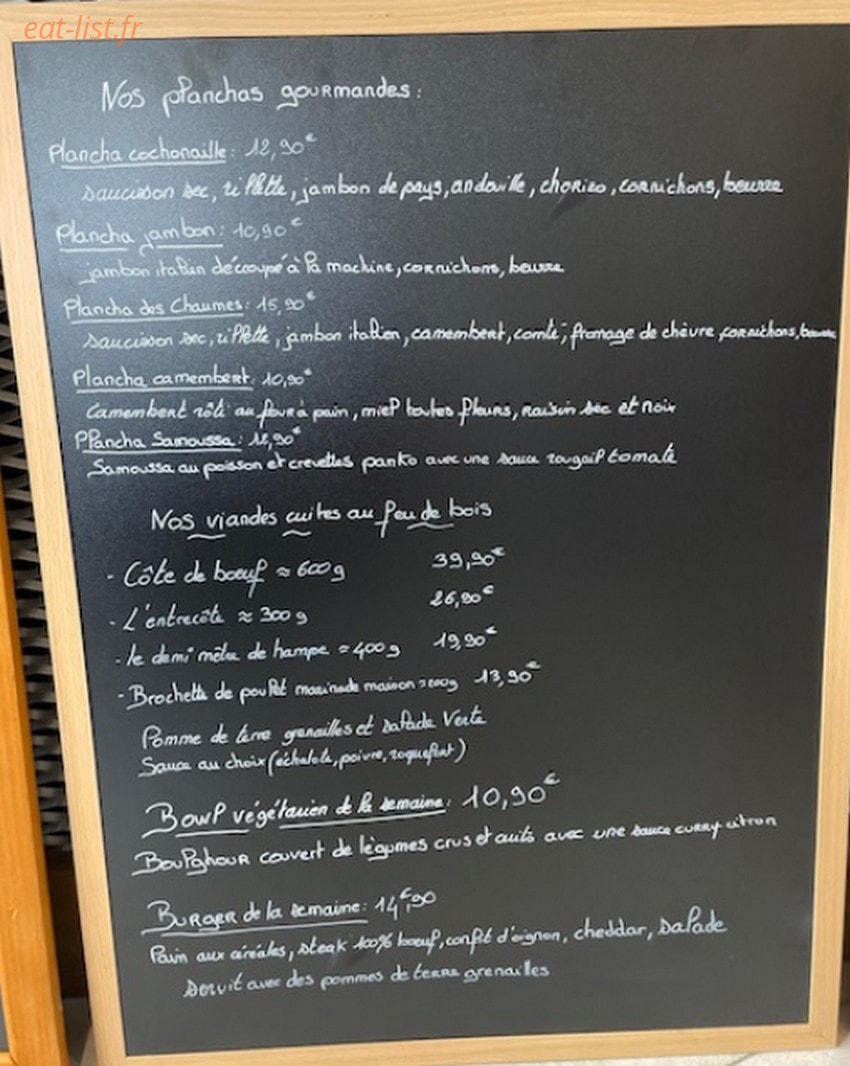 eat-list.fr
Nos planchas gourmandes:
Plancha cochonaille: 12,90€
saucisson sec, rillette, jambon de pays, andouille, chorizo, cornichons, beurre
Plancha jambon: 10,90€
jambon italien découpé à la machine, cornichons, beurre
Plancha des Chaumes: 15,90€
saucisson sec, rillette, jambon italien, camembert, comté, fromage de chèvre, cornichons, beurre
Plancha camembert: 10,90€
Camembert rôti au four à pain, miel toutes fleurs, raisin sec et noix
Plancha Samoussa: 12,90€
Samoussa au poisson et crevettes panko avec une sauce rougail tomate
Nos viandes cuites au feu de bois
- Côte de boeuf ≈ 600g 39,90€
- L'entrecôte ≈ 300g 26,90€
- le demi mètre de hampe ≈ 400g 19,90€
- Brochette de poulet marinade maison ≈ 200g 13,90€
Pomme de terre grenailles et salade Verte
Sauce au choix (échalote, poivre, roquefort)
Bowl végétarien de la semaine: 10,90€
Boulghour couvert de légumes crus et cuits avec une sauce curry citron
Burger de la semaine: 14€,90
Pain aux céréales, steak 100% boeuf, confit d'oignon, cheddar, salade
servit avec des pommes de terre grenailles